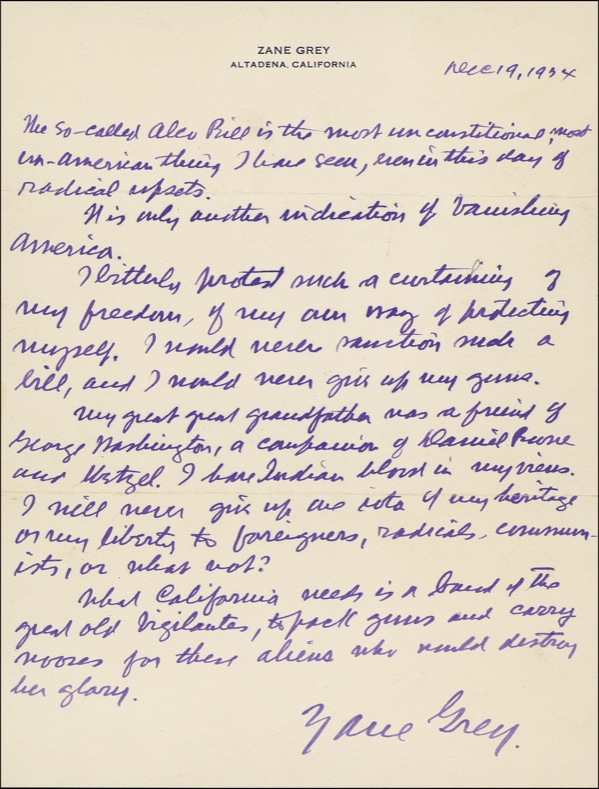 ZANE GREY
ALTADENA, CALIFORNIA
Dec 19, 1934
The so-called Alco Bill is the most unconstitutional, most
un-American thing I have seen, even in this day of
radical upsets.
It is only another indication of Vanishing
America.
I bitterly protest such a curtailing of
my freedom, of my own way of protecting
myself. I would never sanction such a
bill, and I would never give up my guns.
My great great grandfather was a friend of
George Washington, a companion of Daniel Boone
and Wetzel. I have Indian blood in my viens.
I will never give up one iota of my heritage
or my liberty to foreigners, radicals, commun-
ists, or what not?
What California needs is a band of the
great old Vigilantes, to pack guns and carry
nooses for these aliens who would destroy
her glory.
Zane Grey.